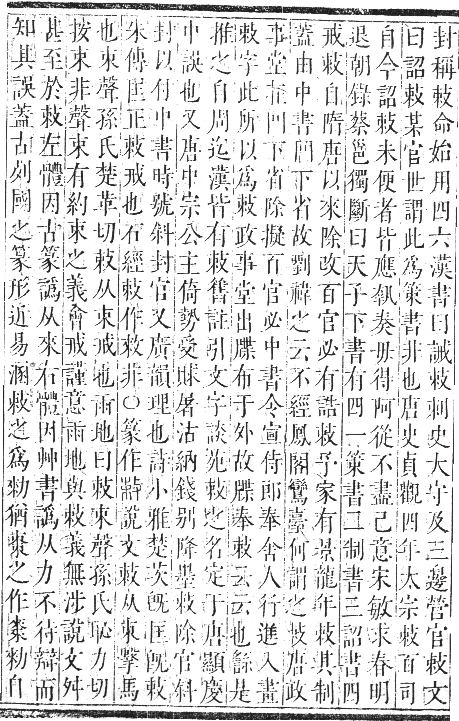 封稱敕命始用四六漢書曰誡敕刺史大守及三邊營官敕文
曰詔敕某官世謂此爲策書非也唐史貞觀四年太宗敕百司
自今詔敕未便者皆應執奏毋得阿從不盡己意宋敏求春明
退朝錄蔡邕獨斷曰天子下書有四一策書二制書三詔書四
戒敕自隋唐以來除改百官必有誥敕予家有景龍年敕其制
蓋由中書門下省故劉禕之云不經鳳閣鸞臺何謂之敕唐政
事堂在門下省除擬百官必中書令宣侍郎奉舍人行進入畫
敕字此所以爲敕政事堂出牒布于外故牒奉敕云云也繇是
推之自周迄漢皆有敕舊註引文字談苑敕之名定于唐顯慶
中誤也又唐中宗公主倚勢受賕屠沽納錢别降墨敕除官斜
封以付中書時號斜封官又廣韻理也詩小雅楚茨旣匡旣敕
朱傳匡正敕戒也石經敕作敕非○篆作𢾭說文敕从朿擊馬
也朿聲孫氏楚革切敕从朿戒地臿地曰敕朿聲孫氏恥力切
按朿非聲朿有約束之義會戒謹意臿地與敕義無涉說文舛
甚至於敕左體因古篆譌从來右體因艸書譌从力不待辯而
知其誤蓋古列國之篆形近易溷敕之爲勑猶棗之作來勑自